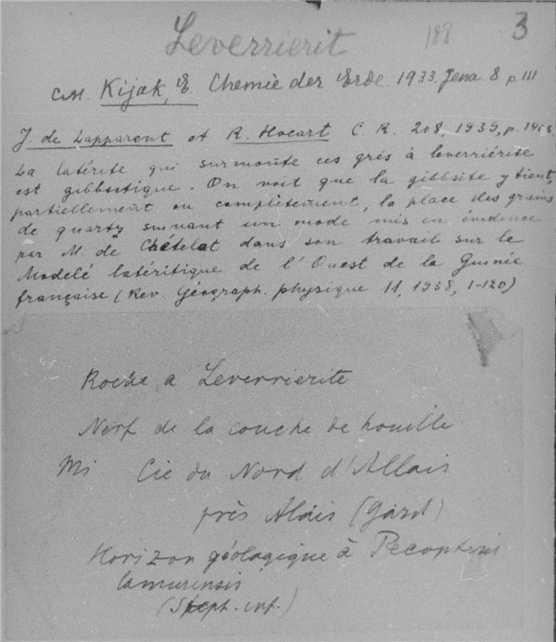 Leverrierit
188
3
см. Kijak, E. Chemie der Erde. 1933. Jena 8 p 111
J. de Lapparent et R. Hocart C R. 208, 1939, p.
La latérite qui surmonte ces grès à leverriérite
est gibbsitique. On voit que la gibbsite y tient,
partiellement ou complètement, la place des grains
de quartz suivant un mode mis en évidence
par M de Chételat dans son travail sur le
Modelé latéritique de l'Ouest de la Guinée
française (Rev. Géograph. physique 11, 1938, 1-120)
Roche a Leverrierite
Nerf de la couche de houille
Cie du Nord d'Allais
près Alais (Gard)
Horizon géologique à Pecopteris
lamurensis
(Steph. inf.)